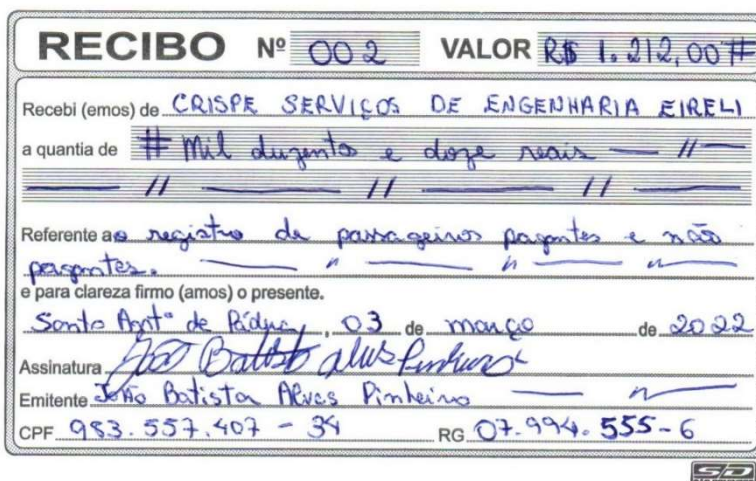 RECIBO Nº 002 VALOR R$ 1.212,00#
Recebi (emos) de CRISPE SERVIÇOS DE ENGENHARIA EIRELI
a quantia de # Mil duzentos e doze reais — // —
— // — // — // —
Referente ao registro de passageiros pagantes e não
pagantes. — // — // — // —
e para clareza firmo (amos) o presente.
Santo Antº de Pádua, 03 de março de 2022
Assinatura João Batista Alves Pinheiro
Emitente João Batista Alves Pinheiro — //
CPF 983.557.407 - 34 RG 07.994.555-6
SD